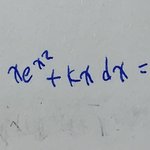 xe^{x^2} + kx dx =